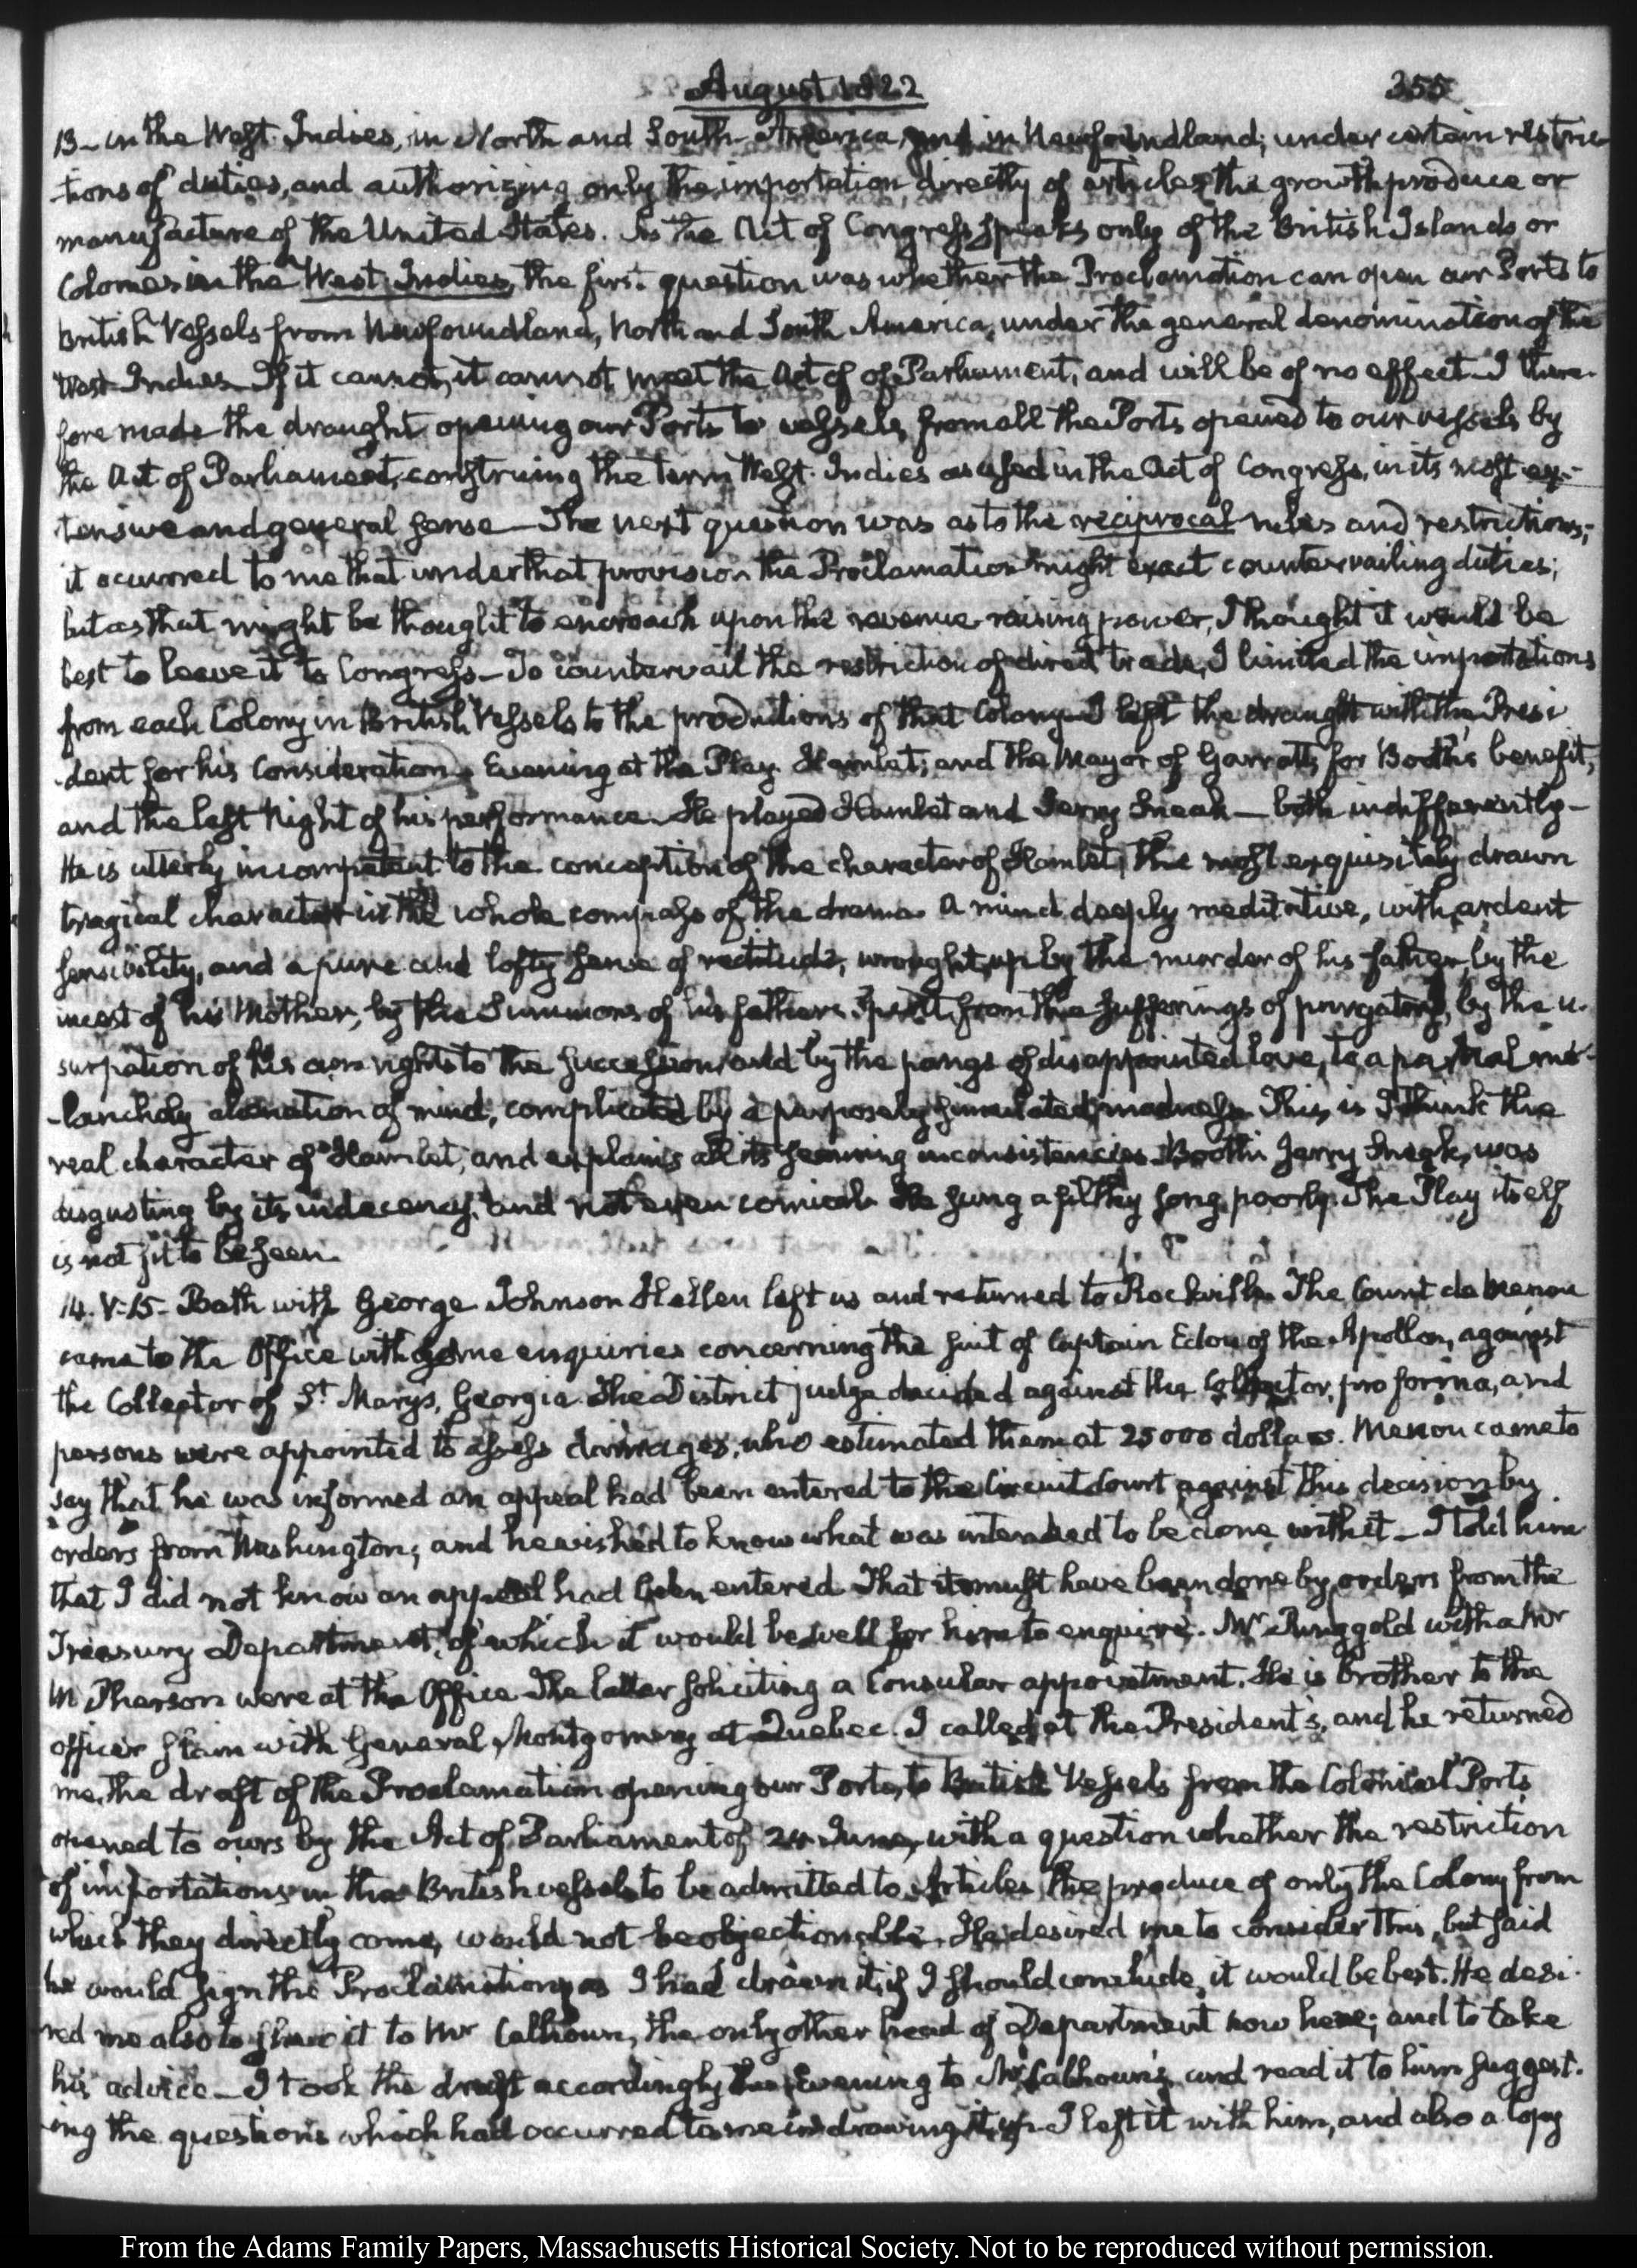 August 1822
355
13- in the West-Indies, in North and South-America, and in Newfoundland; under certain restric-
-tions of duties, and authorizing only the importation directly of articles the growth produce or
manufacture of the United States. As the Act of Congress speaks only of the British Islands or
Colonies in the West-Indies, the first question was whether the Proclamation can open our Ports to
British Vessels from Newfoundland, North and South America, under the general denomination of the
West-Indies. If it cannot, it cannot meet the Act of of Parliament, and will be of no effect. I there-
fore made the draught opening our Ports to vessels from all the Ports opened to our vessels by
the Act of Parliament, construing the term West-Indies as used in the Act of Congress, in its most ex-
tensive and general sense — The next question was as to the reciprocal rules and restrictions;
it occurred to me that under that provision the Proclamation might exact countervailing duties;
but as that might be thought to encroach upon the revenue raising power, I thought it would be
best to leave it to Congress — To countervail the restriction of direct trade, I limited the importations
from each Colony in British Vessels to the productions of that Colony — I left the draught with the Presi
-dent for his Consideration. Evening at the Play. Hamlet; and the Mayor of Garratt, for Booth's benefit,
and the last Night of his performance. He played Hamlet and Jerry Sneak — both indifferently —
He is utterly incompetent to the conception of the character of Hamlet, the most exquisitely drawn
tragical character in the whole compass of the drama. A mind deeply meditative, with ardent
sensibility, and a pure and lofty sense of rectitude, wrought up by the murder of his father, by the
incest of his Mother, by the Summons of his father's Spirit from the sufferings of purgatory, by the u-
surpation of his own rights to the succession, and by the pangs of disappointed love, to a partial me-
-lancholy alienation of mind, complicated by a purposely simulated madness. This, is I think the
real character of Hamlet, and explains all its seeming inconsistencies. Booth's Jerry Sneak, was
disgusting by its indecency, and not even comical. He sung a filthy song, poorly. The Play itself
is not fit to be seen.
14. V:15- Bath with George. Johnson Hellen left us and returned to Rockville. The Count de Menou
came to the Office with some enquiries concerning the suit of Captain Edou of the Apollon, against
the Collector of St. Marys, Georgia. The District judge decided against the Collector, pro forma, and
persons were appointed to assess damages, who estimated them at 25000 dollars. Menou came to
say that he was informed an appeal had been entered to the Circuit Court against this decision by
orders from Washington; and he wished to know what was intended to be done with it — I told him
that I did not know an appeal had been entered. That it must have been done by orders from the
Treasury Department, of which it would be well for him to enquire. Mr Ringgold with a Mr
McPherson were at the Office. The latter soliciting a Consular appointment. He is brother to the
officer slain with General Montgomery at Quebec. I called at the President's, and he returned
me, the draft of the Proclamation opening our Ports, to British Vessels from the Colonial Ports
opened to ours by the Act of Parliament of 24 June, with a question whether the restriction
of importations in the British vessels to be admitted to Articles the produce of only the Colony from
which they directly come, would not be objectionable. He desired me to consider this, but said
he would sign the Proclamation as I had drawn it, if I should conclude, it would be best. He desi-
-red me also to shew it to Mr Calhoun, the only other head of Department now here; and to take
his advice — I took the draft accordingly this Evening to Mr Calhoun's and read it to him suggest-
-ing the questions which had occurred to me in drawing it up. I left it with him, and also a Copy
From the Adams Family Papers, Massachusetts Historical Society. Not to be reproduced without permission.